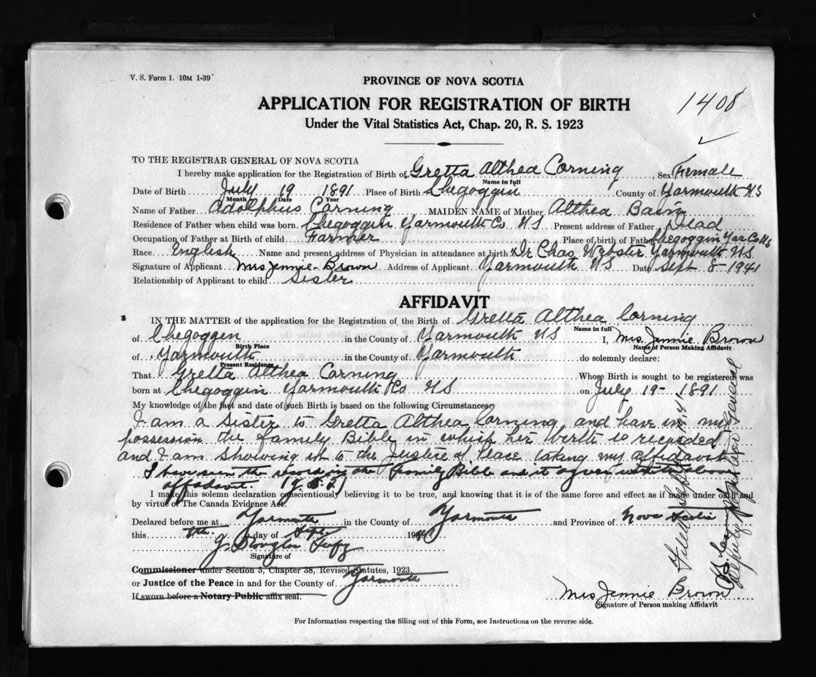 V. S. Form 1. 10M 1-39
PROVINCE OF NOVA SCOTIA
1408
APPLICATION FOR REGISTRATION OF BIRTH
Under the Vital Statistics Act, Chap. 20, R. S. 1923
TO THE REGISTRAR GENERAL OF NOVA SCOTIA
I hereby make application for the Registration of Birth of Gretta Althea Corning Sex Female
Name in full
Date of Birth July 19 1891 Place of Birth Chegoggin County of Yarmouth NS
Month Date Year
Name of Father Adolphus Corning MAIDEN NAME of Mother Althea Bain
Residence of Father when child was born Chegoggin Yarmouth Co NS Present address of Father Dead
Occupation of Father at Birth of child Farmer Place of birth of Father Chegoggin Yar Co NS
Race English Name and present address of Physician in attendance at birth Dr Chas Webster Yarmouth NS
Signature of Applicant Mrs Jennie Brown Address of Applicant Yarmouth NS Date Sept 8-1941
Relationship of Applicant to child Sister
AFFIDAVIT
IN THE MATTER of the application for the Registration of the Birth of Gretta Althea Corning
Name in full
of Chegoggin in the County of Yarmouth NS I, Mrs. Jennie Brown
Birth Place Name of Person Making Affidavit
of Yarmouth in the County of Yarmouth do solemnly declare:
Present Residence
That Gretta Althea Corning Whose Birth is sought to be registered was
born at Chegoggin Yarmouth Co NS on July 19- 1891
My knowledge of the fact and date of such Birth is based on the following Circumstances
I am a Sister to Gretta Althea Corning and have in my
possession the family Bible in which her birth is recorded
and I am showing it to the Justice of Peace taking my affidavit
I have seen the record in the Family Bible and it agrees with above
affidavit.
I make this solemn declaration conscientiously believing it to be true, and knowing that it is of the same force and effect as if made under oath and
by virtue of The Canada Evidence Act.
Declared before me at Yarmouth in the County of Yarmouth and Province of Nova Scotia
this 8th day of Sept 1941
J. Douglas
Signature of
Commissioner under Section 5, Chapter 38, Revised Statutes, 1923,
or Justice of the Peace in and for the County of Yarmouth
If sworn before a Notary Public affix seal.
Mrs Jennie Brown
Signature of Person making Affidavit
For Information respecting the filling out of this Form, see Instructions on the reverse side.
Deputy Registrar General